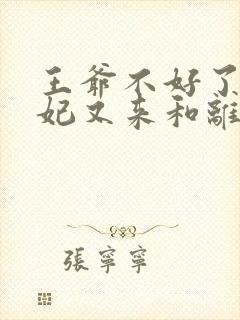 王爺不好了
妃又来和離
張寧寧